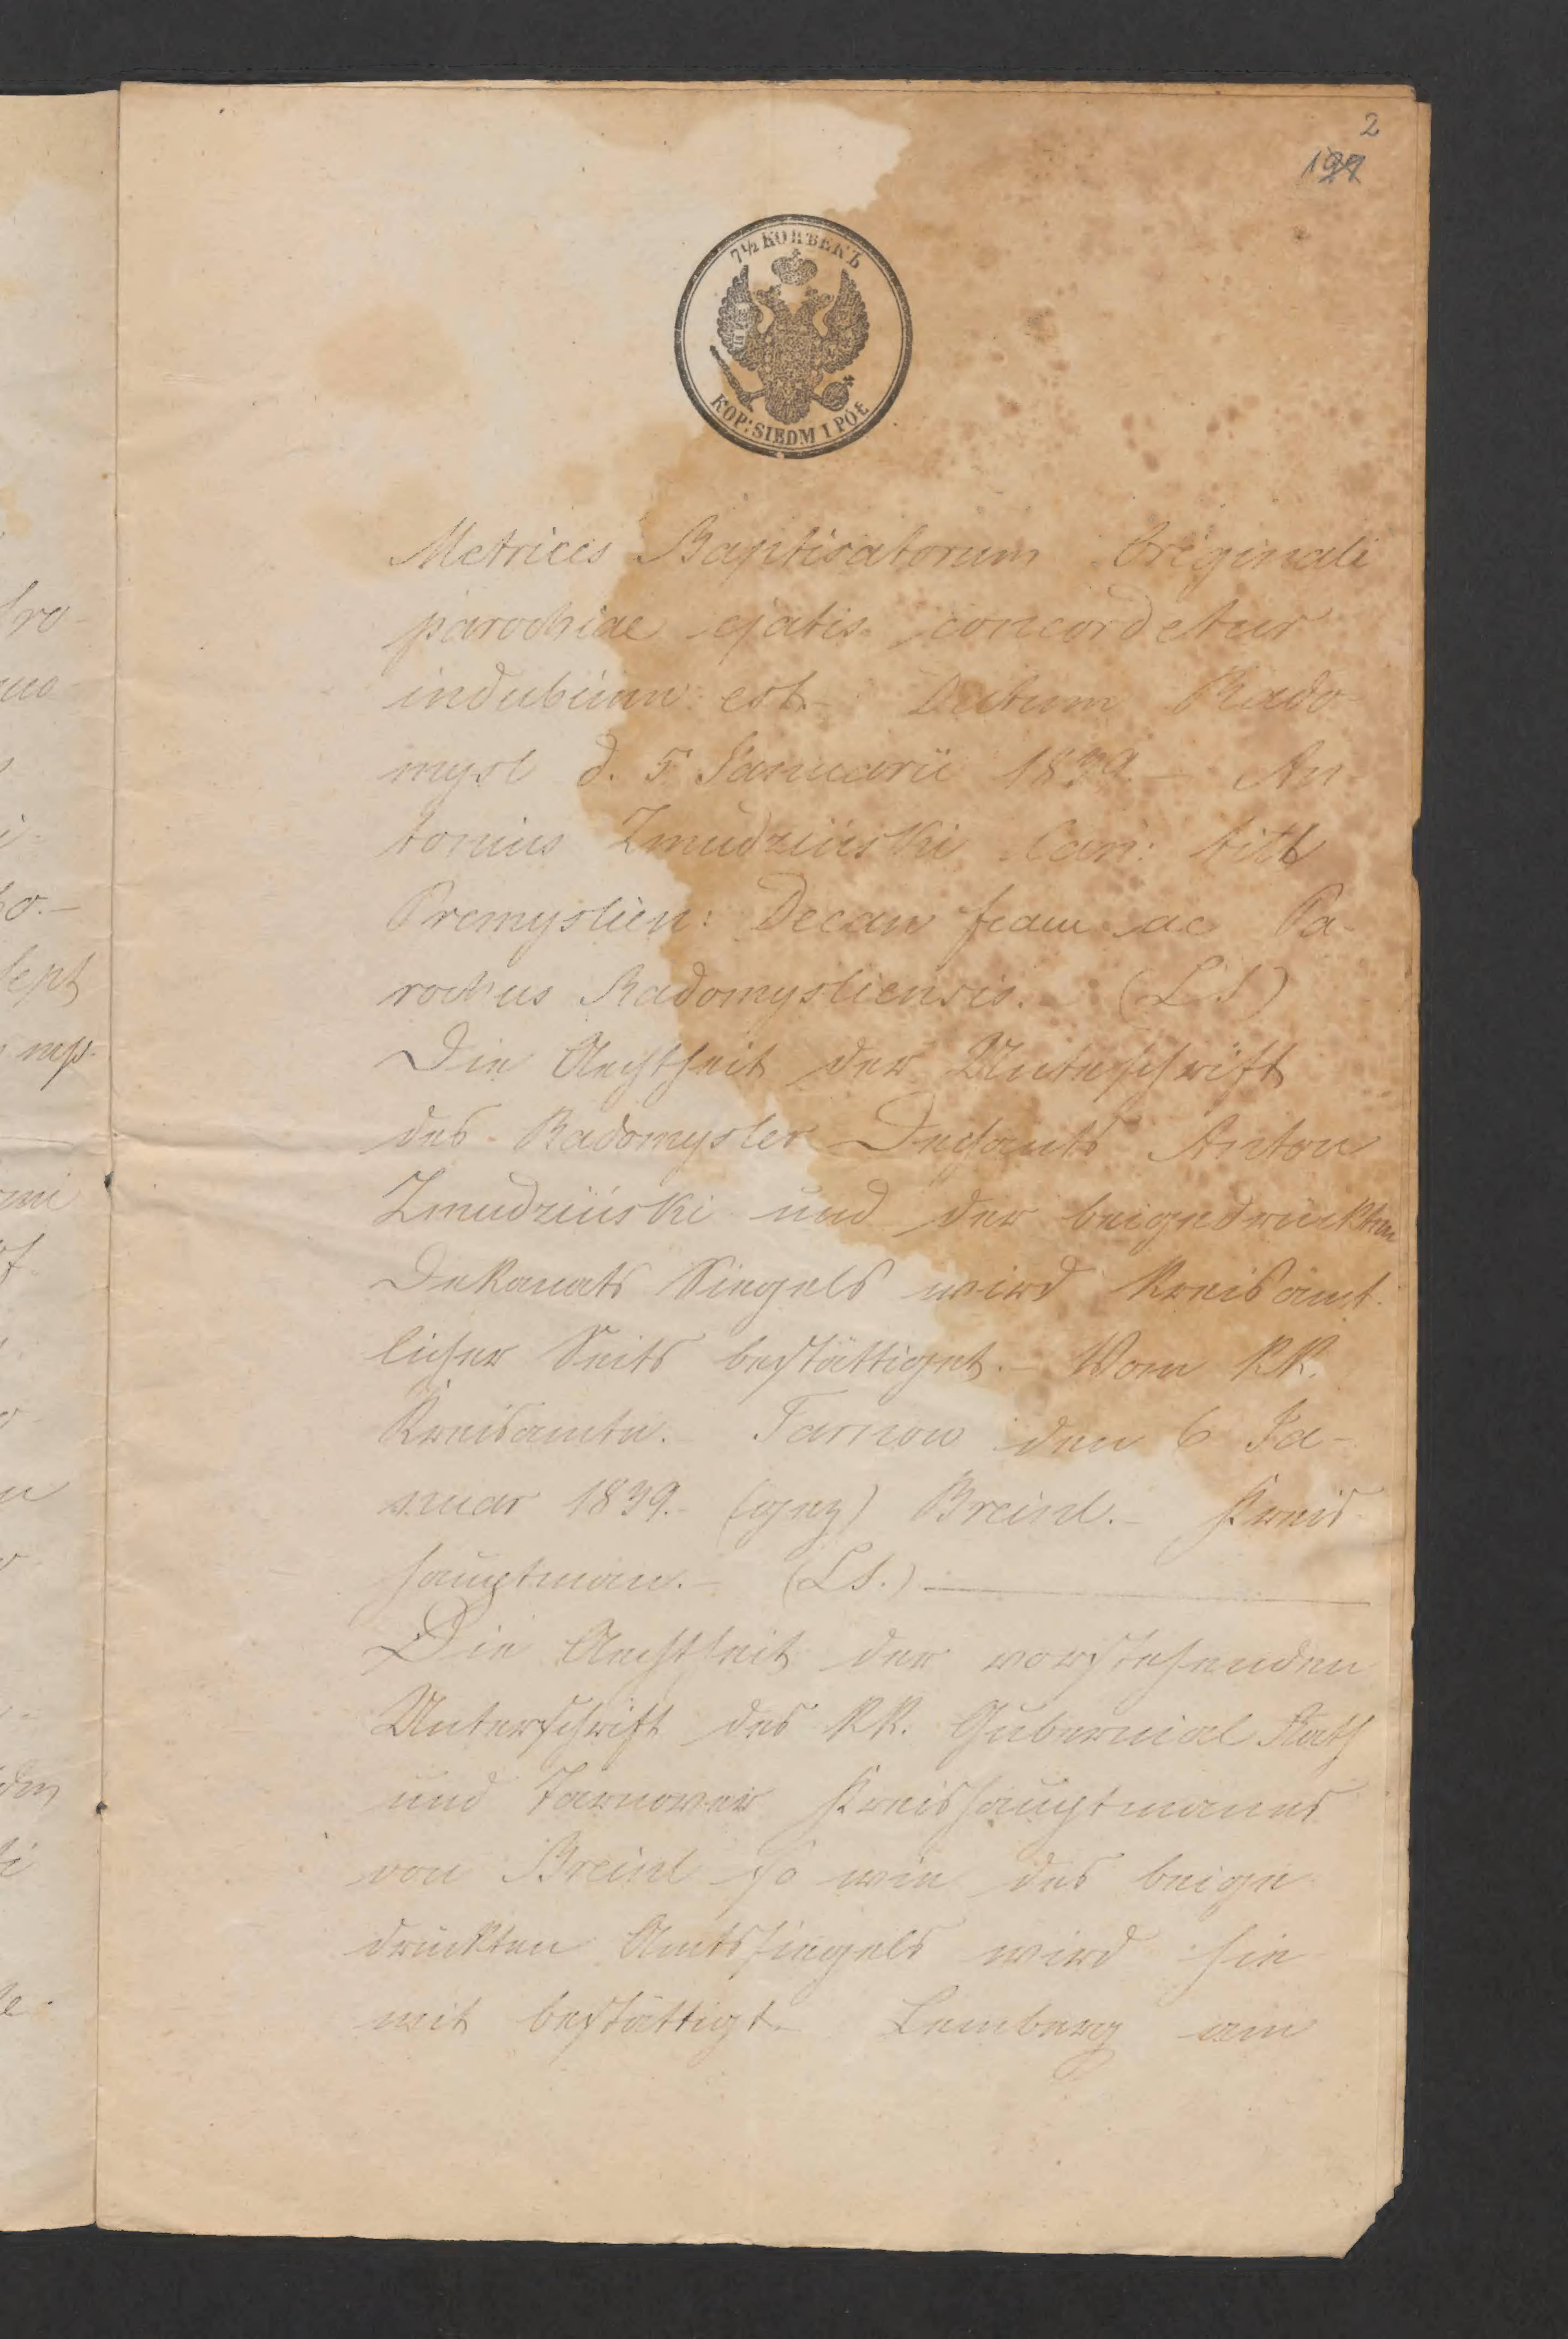 2
7½ КОПѢЕКЪ
KOP: SIEDM I PÓŁ
Metrices Baptisatorum Originali
parochiae cjatis concordetur
indubium est. – Datum Rado-
mysl d. 5 Januarii 1839. – An-
tonius Zmudziński Can: titl
Premyslien: Decan ac Pa-
rochus Radomysliensis. – (LS)
Die Aechtheit der Unterschrift
des Radomysler Dechants Anton
Zmudziński und der beigedruckten
Dekanats Siegels wird Kreisämt-
licher Seits bestättiget. – Vom KK.
Kreisamte. – Tarnow den 6 Ja-
nuar 1839. – (gez) Breinl. – Kreis-
hauptman. – (LS.)
Die Aechtheit der vorstehenden
Unterschrift des KK. Gubernial Rath
und Tarnower Kreishauptmanns
von Breinl so wie des beige
druckten Amtssiegels wird hie
mit bestättigt. – Lemberg am
fro-
mo
o. –
sept
mp.
mi
den